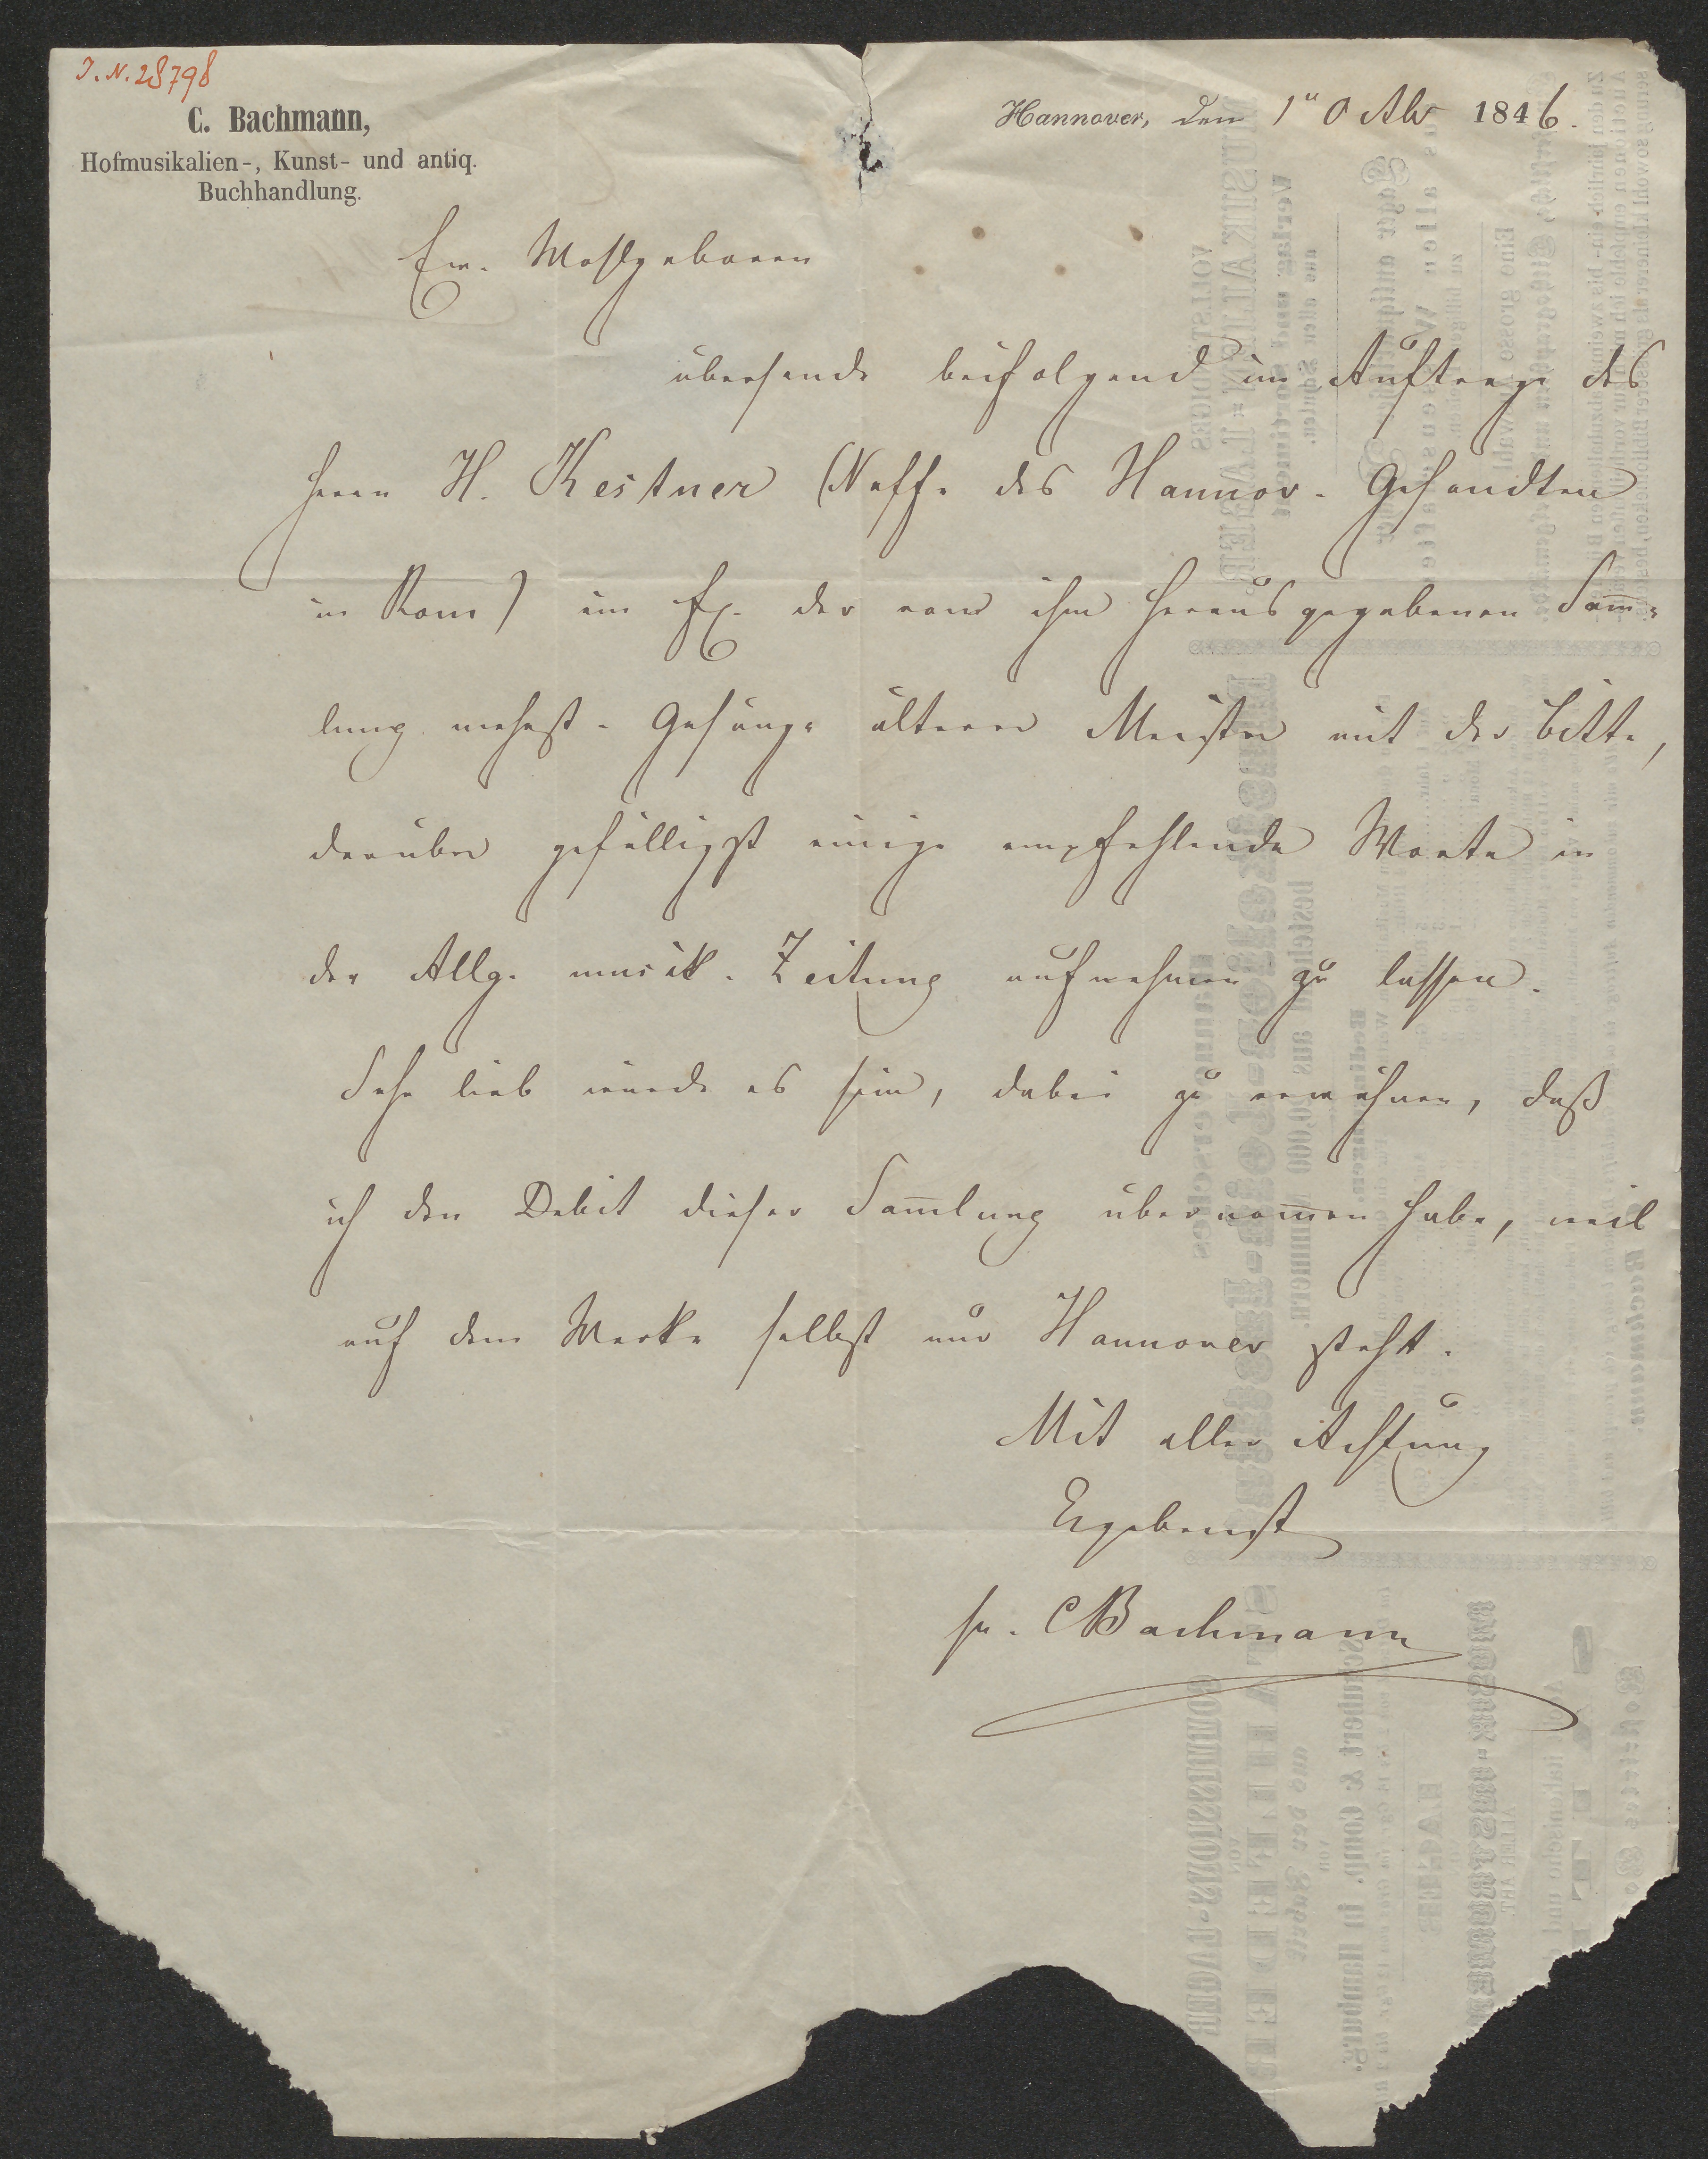 J. N. 28798
C. Bachmann,
Hofmusikalien-, Kunst- und antiq.
Buchhandlung.
Hannover, den 1n Obr 1846.
Ew. Wohlgeboren
übersende beifolgend im Auftrage des
Herrn H. Kestner (Neffe des Hannov. Gesandten
in Rom) ein Ex. der von ihm herausgegebenen Sam̅-
lung mehrst. Gesänge älterer Meister mit der Bitte,
darüber gefälligst einige empfehlende Worte in
der Allg. musik. Zeitung aufnehmen zu lassen.
Sehr lieb würde es sein, dabei zu erwähnen, daß
ich den Debit dieser Sam̅lung übernom̅en habe, weil
auf dem Werke selbst nur Hannover steht.
Mit aller Achtung
Ergebenst
CBachmann